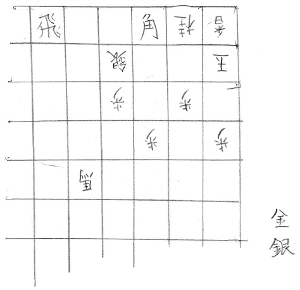 飛 角 桂 香
銀 王
歩 歩
歩 歩
馬
金
銀